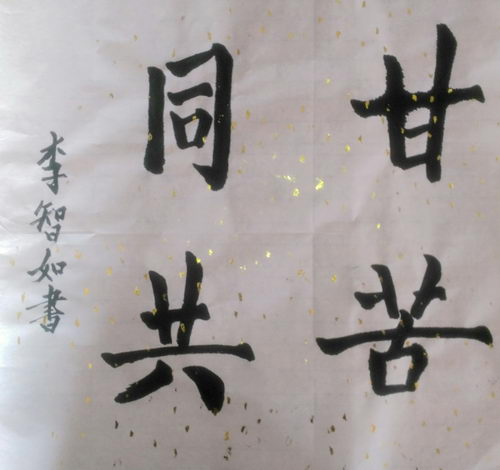 甘苦
同共
李智如書